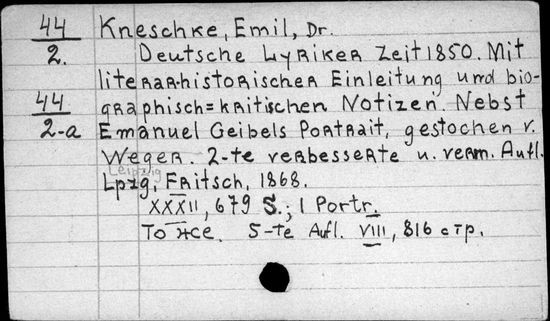 44 Kneschke, Emil, Dr.
2. Deutsche Lyriker Zeit 1850. Mit
literar-historischer Einleitung und bio-
44 graphisch=kritischen Notizen. Nebst
2-a Emanuel Geibels Portrait, gestochen v.
Weger. 2-te verbesserte u. verm. Aufl.
Leipzig
Lpzg, Fritsch, 1868.
XXXII, 679 S.; 1 Portr.
То же. 5-te Aufl. VIII, 816 стр.